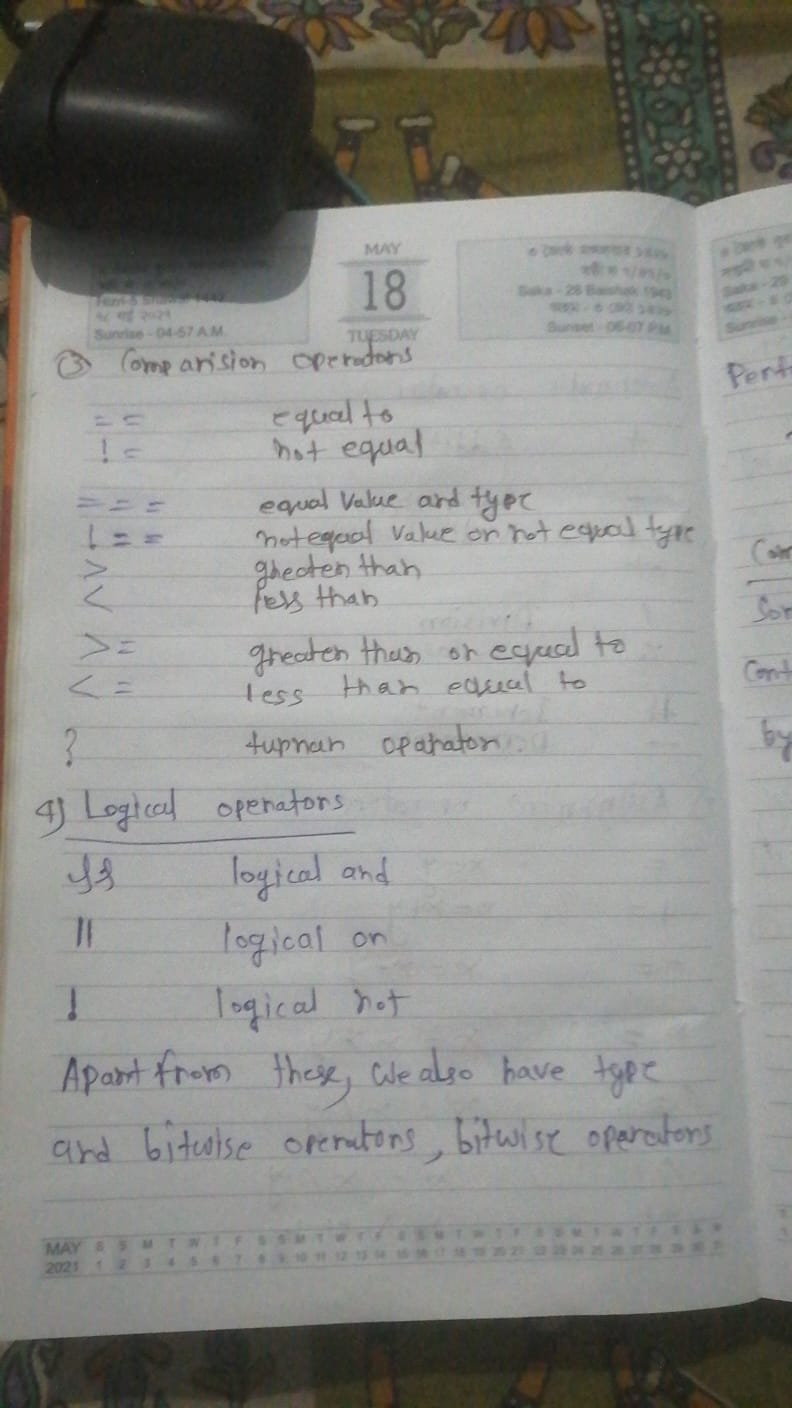 MAY
18
TUESDAY
Sunrise - 04-57 A.M.
Saka - 28 Baishak 1943
Sunset - 06-07 P.M.
③ Comparision operators
== equal to
!= not equal
=== equal value and type
!== not equal value or not equal type
> greater than
< less than
>= greater than or equal to
<= less than equal to
? turnan oparator.
4) Logical operators
&& logical and
|| logical or
! logical not
Apart from these, we also have type
and bitwise operators, bitwise operators
MAY S S M T W T F S S M T W T F S S M T W T F S S M T W T F S S M
2021 1 2 3 4 5 6 7 8 9 10 11 12 13 14 15 16 17 18 19 20 21 22 23 24 25 26 27 28 29 30 31
by